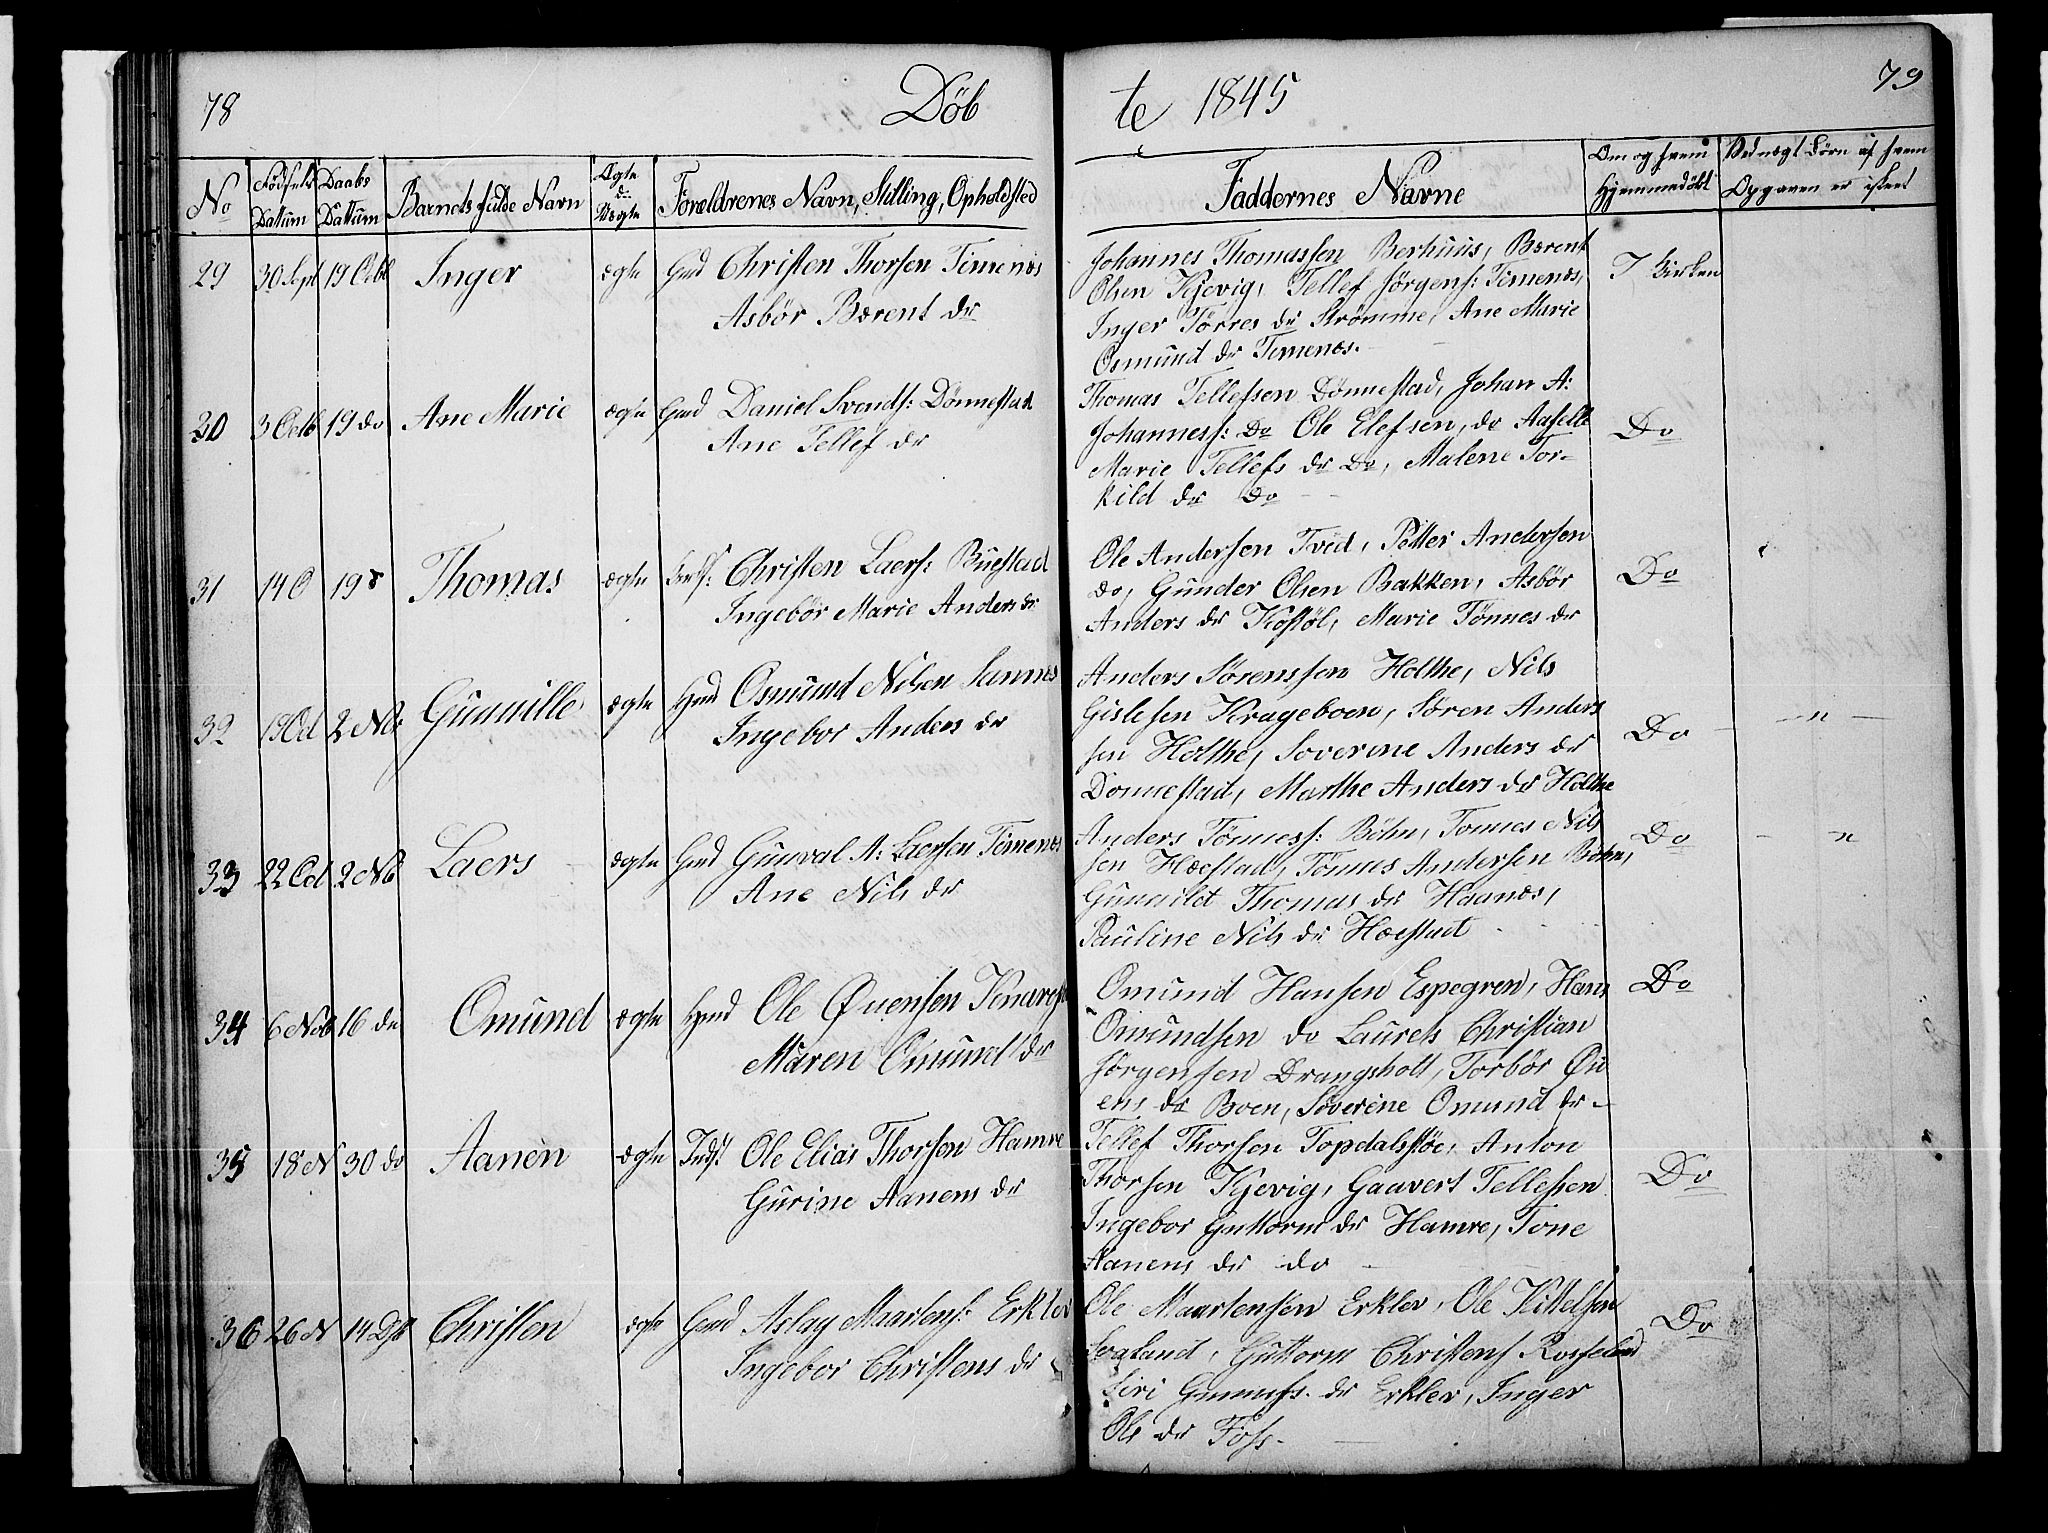 78
Döb
te 1845
79
No
Fødsels Dattum
Daabs Dattum
Barnets fulde Navn
Ægte d: Uægte
Forældrenes Navn, Stilling, Opholdsted
Faddernes Navne
Om og hvem Hjemmedöbt
Opgaven er
29 30 Sept 19 Octb Inger ægte Gmd Christen Thorsen Timenes
Asbör Bærent dr
Johannes Thomassen Berhuus, Bærent
Olsen Kjevig, Tellef Jörgens: Timenes,
Inger Törres dr Strömme, Ane Marie
Osmund dr Timenes.
I Kirken
30 3 Octb 19 do Ane Marie ægte Gmd Daniel Svends: Dönnestad
Ane Tellef dr
Thomas Tellefsen Dönnestad, Johan A:
Johanness: Do Ole Elefsen, do Aaselle
Marie Tellefs dr Do, Malene Tor-
kild dr Do
Do
31 14 O 19 Thomas ægte Christen Laers: Buestad
Ingebör Marie Anders dr
Ole Andersen Tved, Petter Andersen
do, Gunder Olsen Bakken, Asbör
Anders dr Kostöl, Marie Tönnes dr
Do
32 19 Od 2 Nb Gunnille ægte Hmd Osmund Nilsen Sannes
Ingebor Anders dr
Anders Sörenssen Holthe, Nils
Gislesen Krageboen, Sören Anders
sen Holthe, Soverine Anders dr
Donnestad, Marthe Anders dr Holthe
Do
— n —
33 22 Od 2 Nb Laers ægte Gmd Gunval A: Laersen Timenes
Ane Nils dr
Anders Tönness: Böhn, Tonnes Nils
sen Hæestad, Tönnes Andersen Böhn,
Gunnild Thomas dr Haanes,
Pauline Nils dr Hæestad
Do
— n
34 6 Novb 16 do Omund ægte Hmd Ole Øuensen
Maren Omund dr
Omund Hansen Espegren, Hans
Omundsen do Laurets Christian
Jörgensen Drangsholt, Torbör Øu
ens dr Boen, Soverine Omund dr -
Do
35 18 N 30 do Aanen ægte Inds: Ole Elias Thorsen Hamre
Gurine Aanens dr
Tellef Thorsen Topdalsöe, Anton
Thorsen Kjevig, Gaavert Tellefsen
Ingebor Guttorm dr Hamre, Tone
Aanens dr do
Do
36 26 N 14 Dsb Christen ægte Gmd Aslag Maartens: Erklev
Ingebor Christens dr
Ole Maartensen Erklev, Ole Kittelsen
Sogland, Guttorm Christens Rosseland
Siri Gunnufs. dr Erklev, Inger
Ols dr Foss.
Do